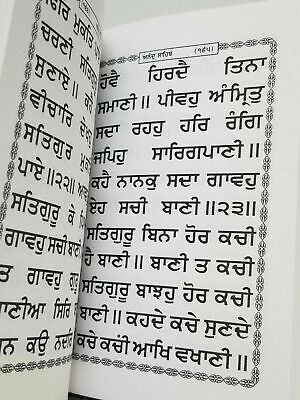 ਚਰਣੀ
ਸੁਣਾਏ॥
ਵੀਚਾਰਿ
ਸਤਿਗੁਰ
ਪਾਏ॥੨੨॥
ਸਤਿਗੁਰੂ ਕੇ
ਗਾਵਹੁ ਸਚੀ ਬਾਣੀ॥
ਤ ਗਾਵਹੁ ਗੁਰੂ
ਬਾਣੀਆ ਸਿਰਿ
ਕਉ ਨਦਰਿ
ਅਨੰਦੁ ਸਾਹਿਬ (੧੬੫)
ਹੋਵੈ ਹਿਰਦੈ ਤਿਨਾ
ਸਮਾਣੀ॥ ਪੀਵਹੁ ਅੰਮ੍ਰਿਤੁ
ਸਦਾ ਰਹਹੁ ਹਰਿ ਰੰਗਿ
ਜਪਿਹੁ ਸਾਰਿਗਪਾਣੀ॥
ਕਹੈ ਨਾਨਕੁ ਸਦਾ ਗਾਵਹੁ
ਏਹ ਸਚੀ ਬਾਣੀ॥੨੩॥
ਸਤਿਗੁਰੂ ਬਿਨਾ ਹੋਰ ਕਚੀ
ਹੈ ਬਾਣੀ॥ ਬਾਣੀ ਤ ਕਚੀ
ਸਤਿਗੁਰੂ ਬਾਝਹੁ ਹੋਰ ਕਚੀ
ਬਾਣੀ॥ ਕਹਦੇ ਕਚੇ ਸੁਣਦੇ
ਕਚੇ ਕਚੀਂ ਆਖਿ ਵਖਾਣੀ॥